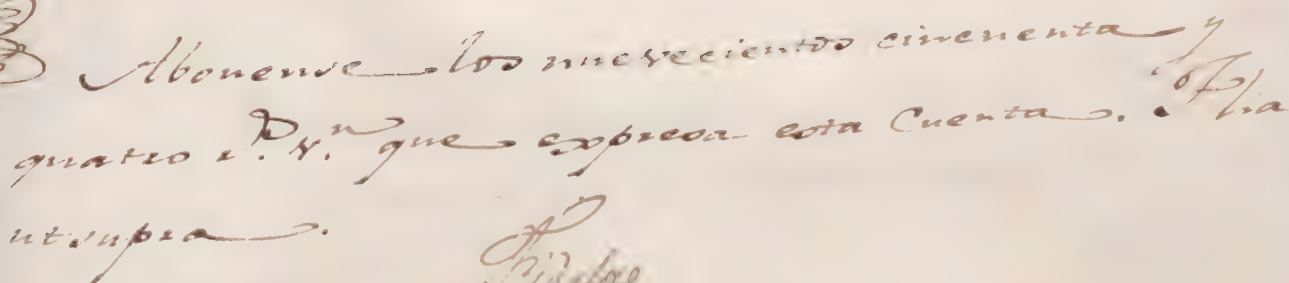 Abonense los nuevecientos cincuenta y
quatro r.^s v.^n que expresa esta Cuenta. Fha
ut supra.
Hidalgo